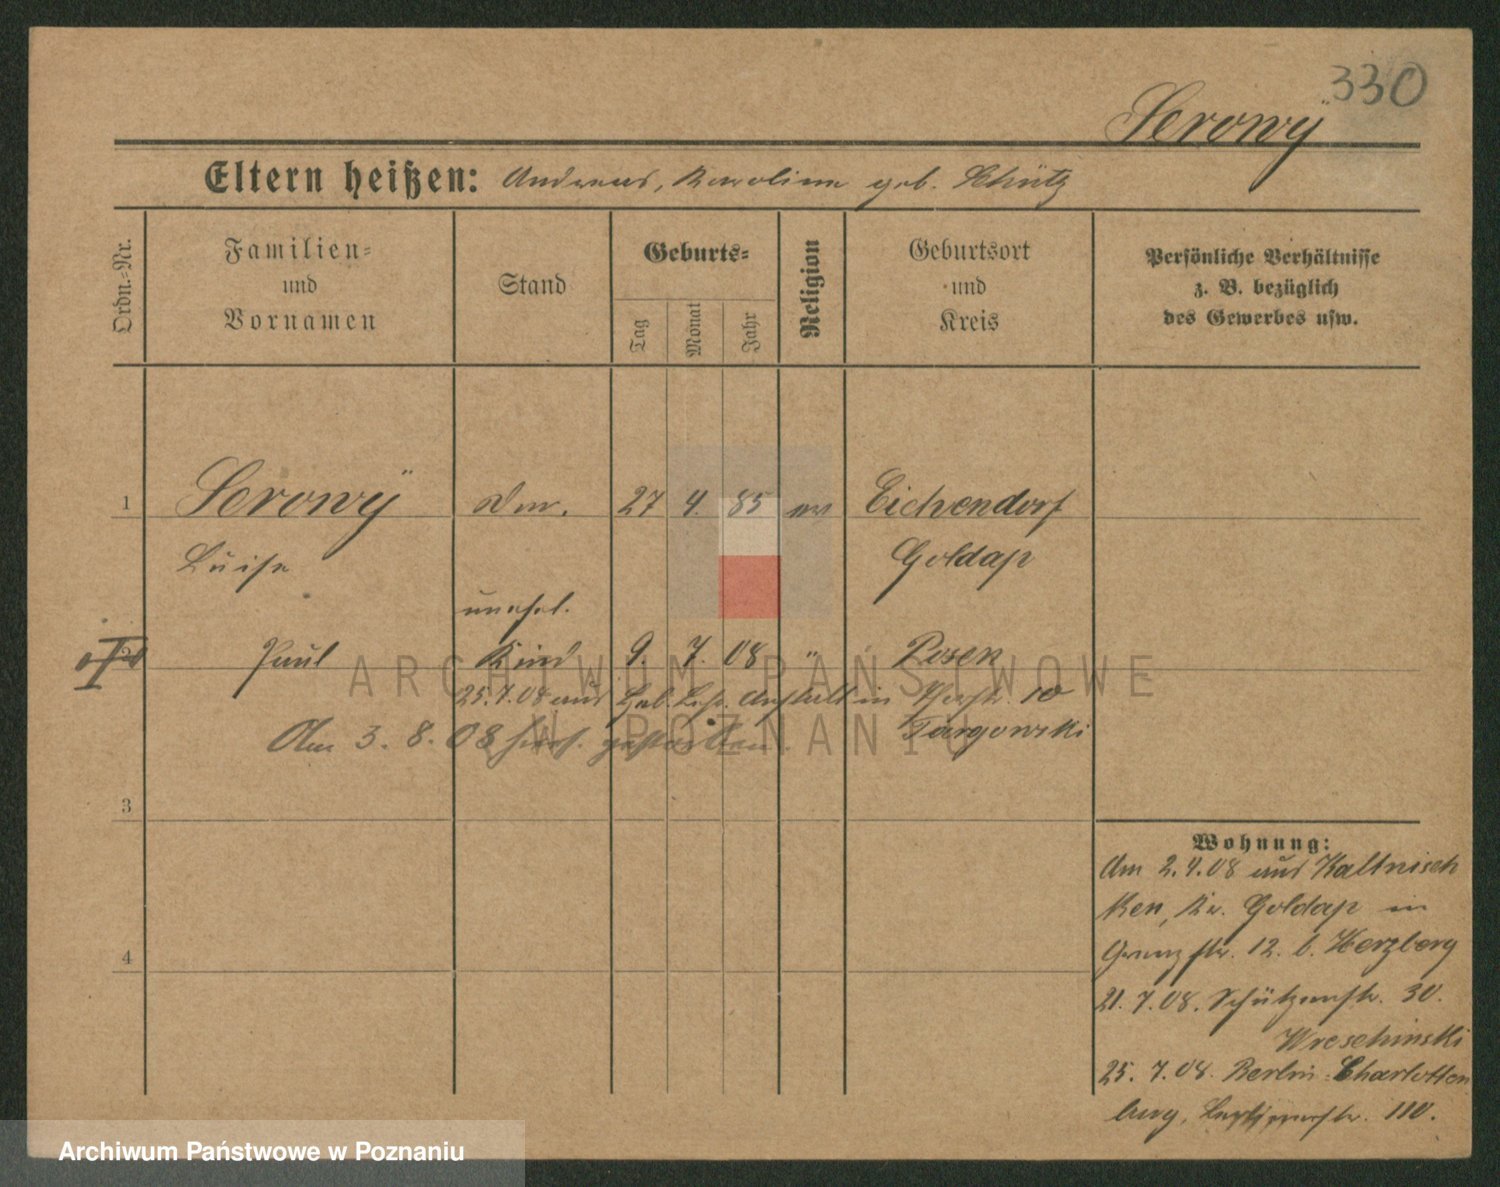 330
Serowÿ
Eltern heißen: Andreas, Karoline geb. Schütz
Ordn.-Nr.
Familien-
und
Vornamen
Stand
Geburts-
Tag
Monat
Jahr
Religion
Geburtsort
und
Kreis
Persönliche Verhältnisse
z. B. bezüglich
des Gewerbes usw.
1 Serowÿ 27 4. 85 ev Eichendorf
Luise Goldap
unehel.
2 Paul Kind 9. 7. 08 " Posen
25.7.08 aus Geb. Anstalt in 10
Am 3. 8. 08 hies. gestorben. Targowski
3
4
Wohnung:
Am 2.4.08 aus Kallnisch
ken, Kr. Goldap in
Grenzstr. 12. b. Herzberg
21.7.08. Schützenstr. 30.
Wreschinski
25.7.08. Berlin-Charlotten
burg, 110.
ARCHIWUM PAŃSTWOWE
W POZNANIU
Archiwum Państwowe w Poznaniu